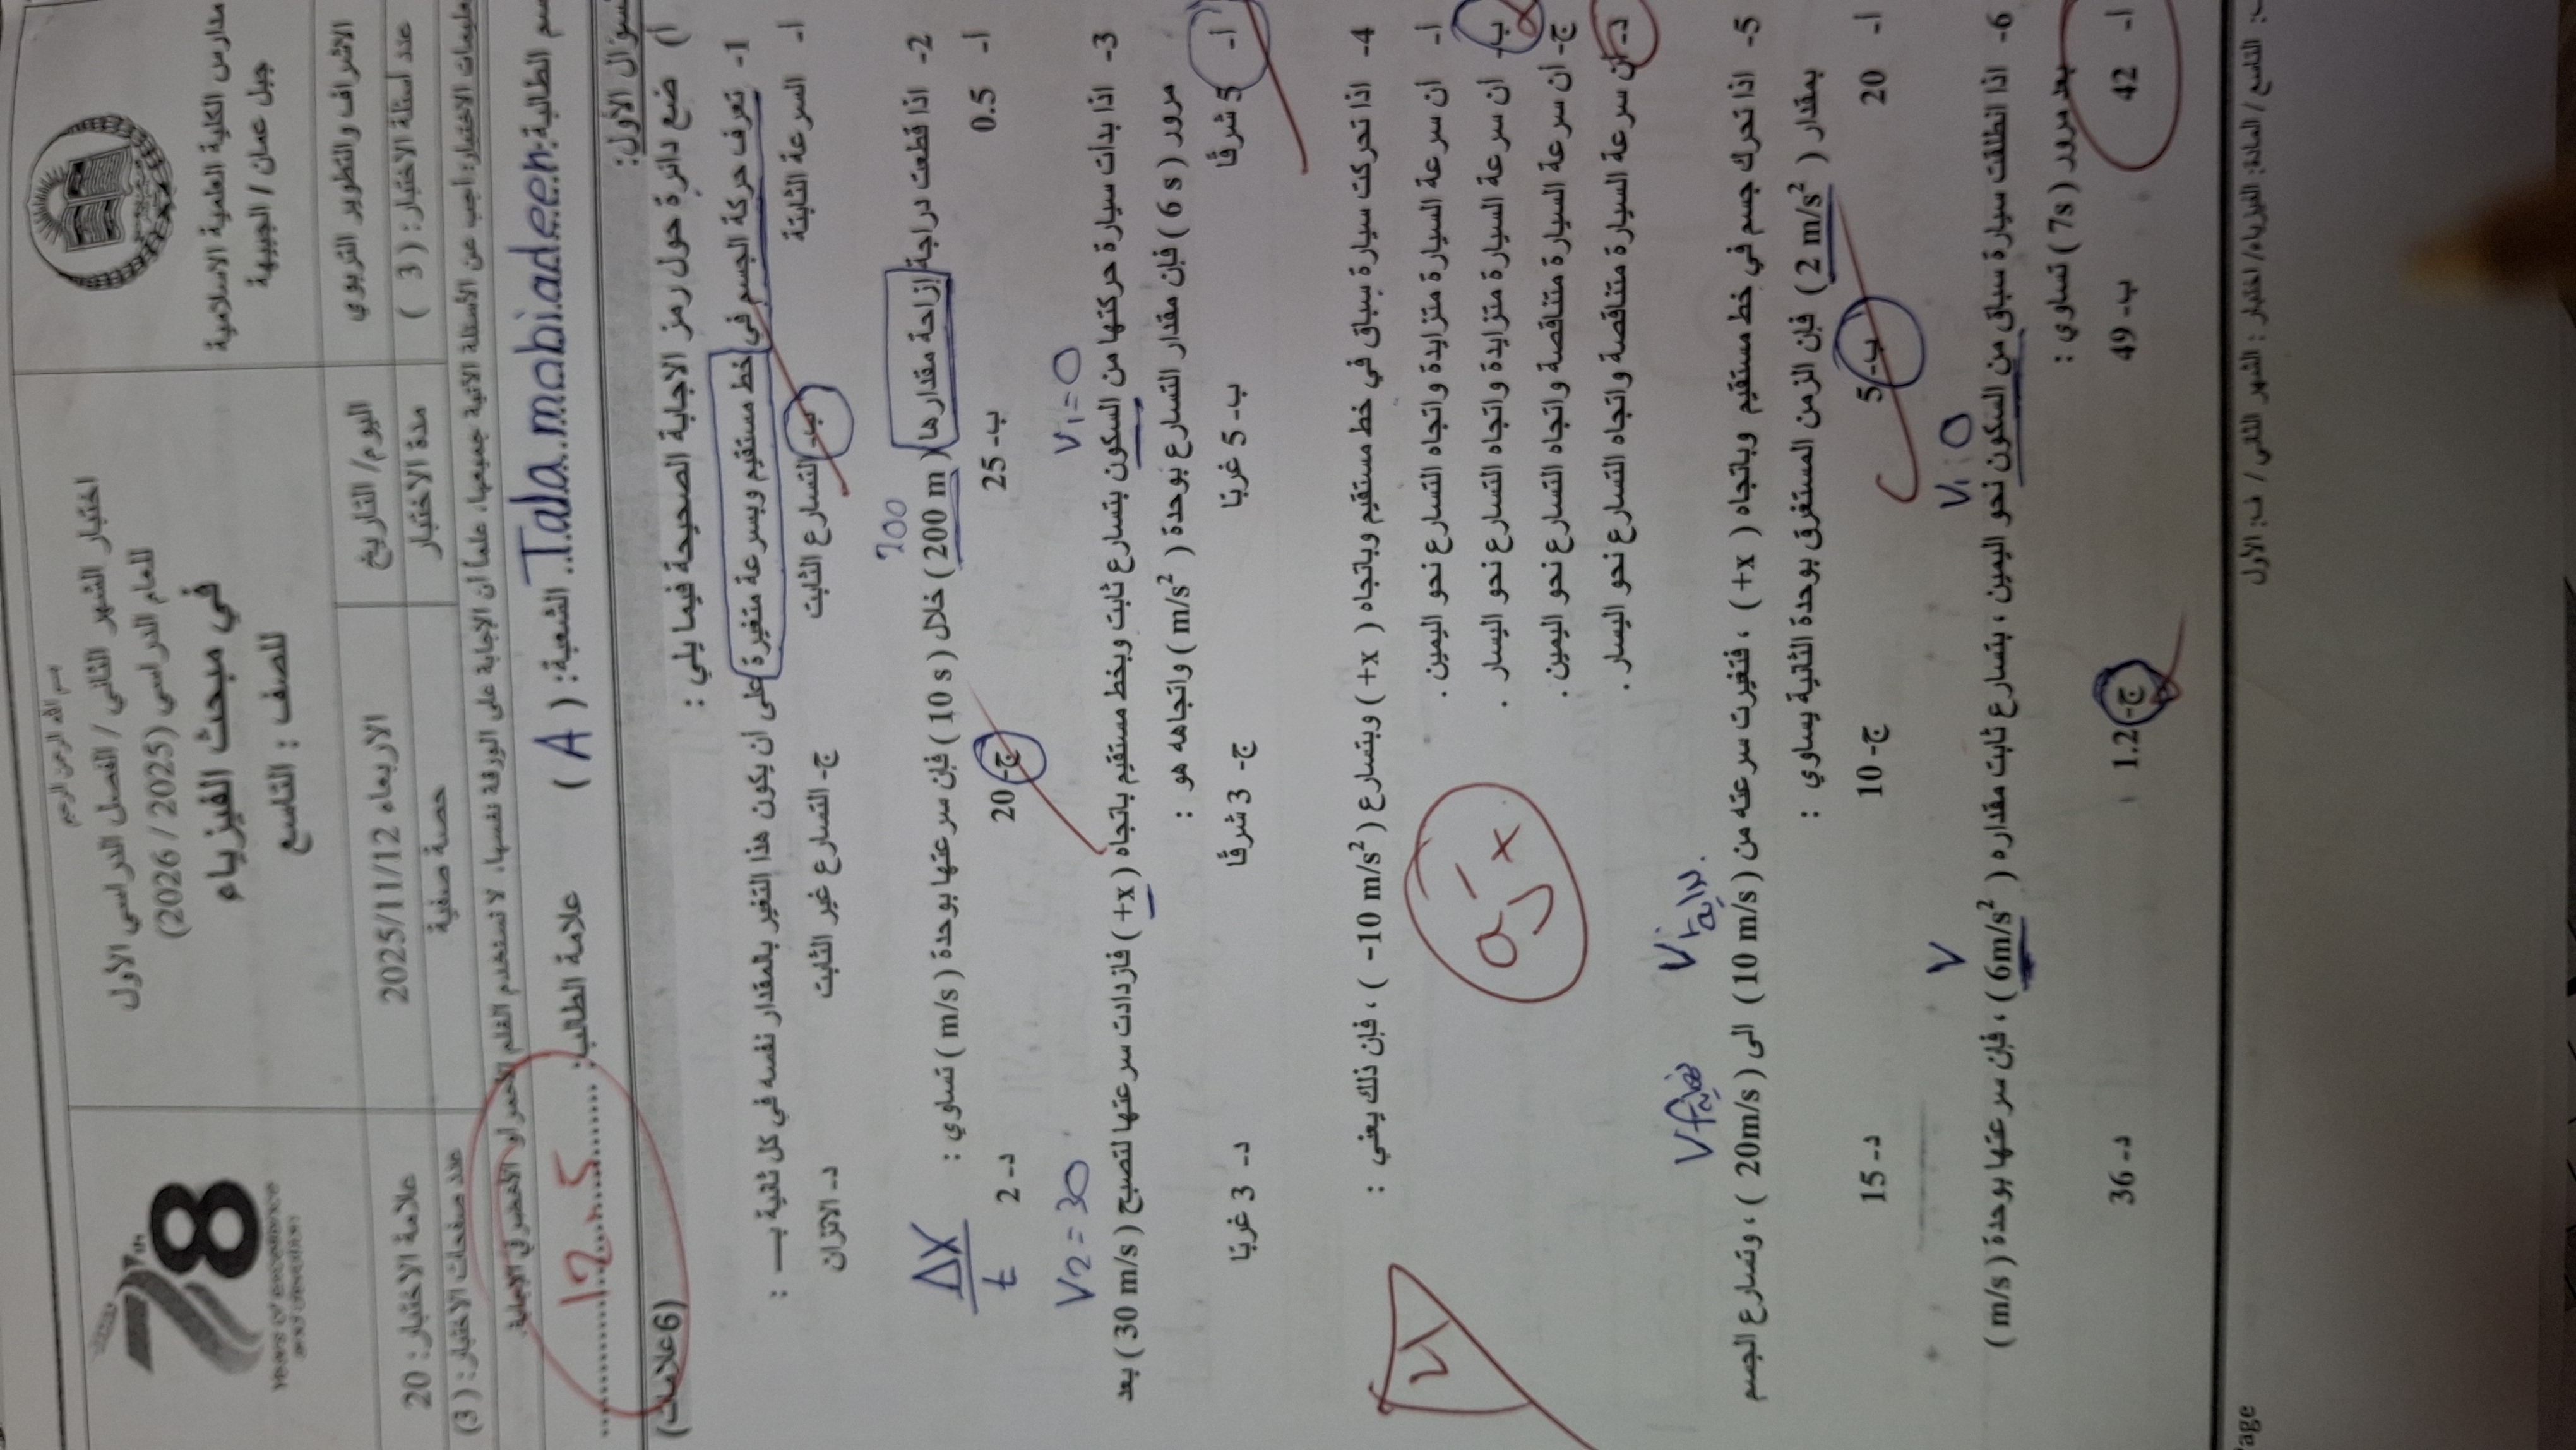 بسم الله الرحمن الرحيم
مدارس الكلية العلمية الاسلامية
جبل عمان / الجبيهة
اختبار الشهر الثاني / الفصل الدراسي الأول
للعام الدراسي (2025 / 2026)
في مبحث الفيزياء
للصف : التاسع
78
YEARS OF EXCELLENCE
الاشراف والتطوير التربوي
اليوم/ التاريخ
الاربعاء 2025/11/12
علامة الاختبار: 20
عدد أسئلة الاختبار: ( 3 )
مدة الاختبار
حصة صفية
عدد صفحات الاختبار: ( 3 )
تعليمات الاختبار: أجب عن الأسئلة الآتية جميعها، علماً أن الإجابة على الورقة نفسها، لا تستخدم القلم الأحمر أو الأخضر في الإجابة.
اسم الطالبة: Tala mobiadeen الشعبة: ( A ) علامة الطالب: 12.5
السؤال الأول:
(6علامات)
أ) ضع دائرة حول رمز الاجابة الصحيحة فيما يلي :
1- تعرف حركة الجسم في خط مستقيم وبسرعة متغيرة على أن يكون هذا التغير بالمقدار نفسه في كل ثانية بـ :
أ- السرعة الثابتة ب- التسارع الثابت ج- التسارع غير الثابت د- الاتزان
200
2- اذا قطعت دراجة إزاحة مقدارها ( 200 m ) خلال ( 10 s ) فإن سرعتها بوحدة ( m/s ) تساوي :
ΔX
t
أ- 0.5 ب- 25 ج- 20 د- 2
V1=0 V2=30
3- اذا بدأت سيارة حركتها من السكون بتسارع ثابت وبخط مستقيم باتجاه ( +x ) فازدادت سرعتها لتصبح ( 30 m/s ) بعد
مرور ( 6 s ) فإن مقدار التسارع بوحدة ( m/s² ) واتجاهه هو :
أ- 5 شرقًا ب- 5 غربًا ج- 3 شرقًا د- 3 غربًا
4- اذا تحركت سيارة سباق في خط مستقيم وباتجاه ( +x ) وبتسارع ( -10 m/s² ) ، فإن ذلك يعني :
أ- أن سرعة السيارة متزايدة واتجاه التسارع نحو اليمين .
ب- أن سرعة السيارة متزايدة واتجاه التسارع نحو اليسار .
ج- أن سرعة السيارة متناقصة واتجاه التسارع نحو اليمين .
د- أن سرعة السيارة متناقصة واتجاه التسارع نحو اليسار .
Vi بداية Vf نهاية
5- اذا تحرك جسم في خط مستقيم وباتجاه ( +x ) ، فتغيرت سرعته من ( 10 m/s ) الى ( 20m/s ) ، وتسارع الجسم
بمقدار ( 2 m/s² ) فإن الزمن المستغرق بوحدة الثانية يساوي :
أ- 20 ب- 5 ج- 10 د- 15
Vi:0 V
6- اذا انطلقت سيارة سباق من السكون نحو اليمين ، بتسارع ثابت مقداره ( 6m/s² ) ، فإن سرعتها بوحدة ( m/s )
بعد مرور ( 7s ) تساوي :
أ- 42 ب- 49 ج- 1.2 د- 36
التاسع / المادة: الفيزياء/ اختبار : الشهر الثاني / ف: الأول
age